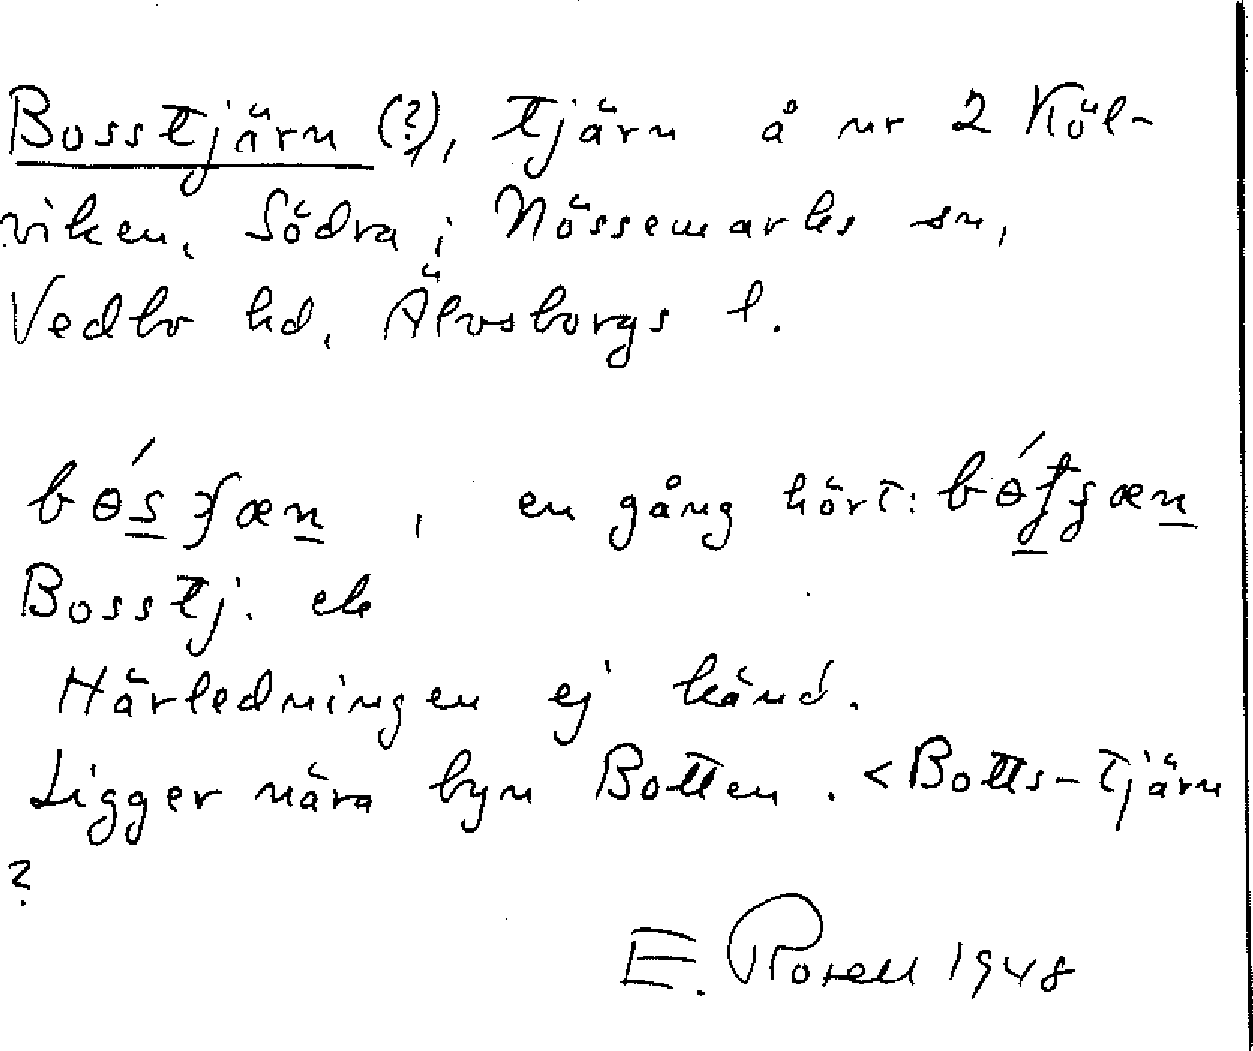 Bosstjärn (?), tjärn å nr 2 Köl-
viken, Södra i Nössemarks sn,
Vedbo hd, Älvsborgs l.
en gång hört:
Bosstj. ek
Härledningen ej känd.
Ligger nära byn Botten. < Botts-tjärn
?
E. Rosell 1948